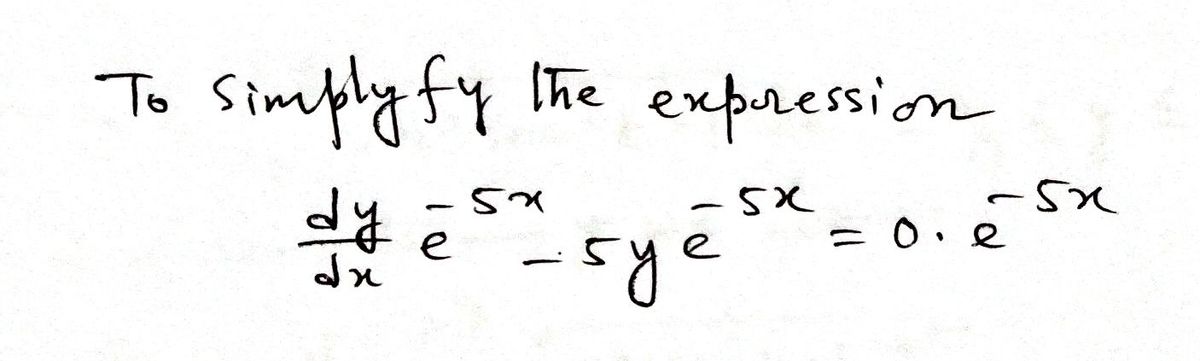 To simplyfy the expression
dy/dx e^-5x - 5y e^-5x = 0. e^-5x